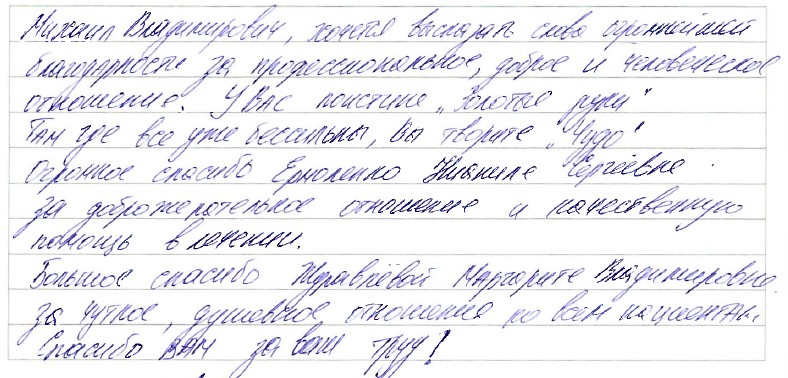 Михаил Владимирович, хочется высказать слова огромнейшей
благодарности за профессиональное, доброе и человеческое
отношение. У Вас поистине „Золотые руки"
Там где все уже бессильны, Вы творите „Чудо"
Огромное спасибо Ермоленко Сергеевне
за доброжелательное отношение и качественную
помощь в лечении.
Большое спасибо Журавлёвой Маргарите Владимировне
за чуткое, душевное отношение ко всем пациентам.
Спасибо ВАМ за ваш труд!